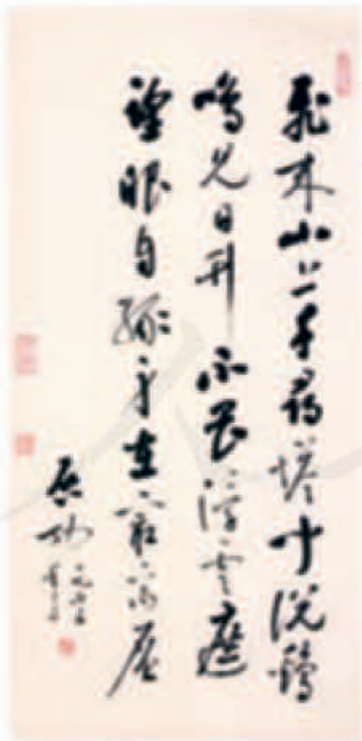 飛来山上千尋塔聞説鷄
鳴見日升不畏浮雲遮
望眼自緣身在最高層
啓功